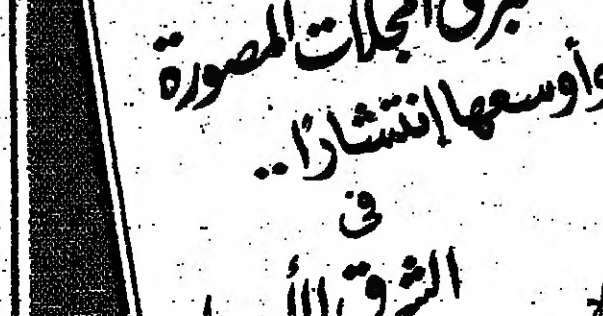 المجلات المصورة
وأوسعها إنتشارًا..
فى
الشرق